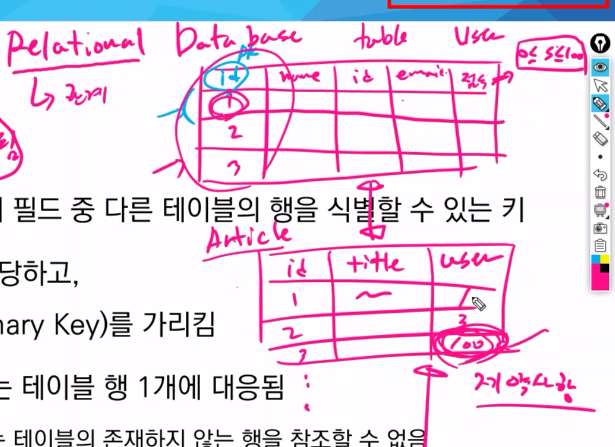 Relational Database table User
관계
id name id email 점수 0≤ S≤100
1
2
3
필드 중 다른 테이블의 행을 식별할 수 있는 키
Article
당하고,
id title user
1 ~ 1
mary Key)를 가리킴
2 3
3 100
는 테이블 행 1개에 대응됨
제약사항
는 테이블의 존재하지 않는 행을 참조할 수 없음